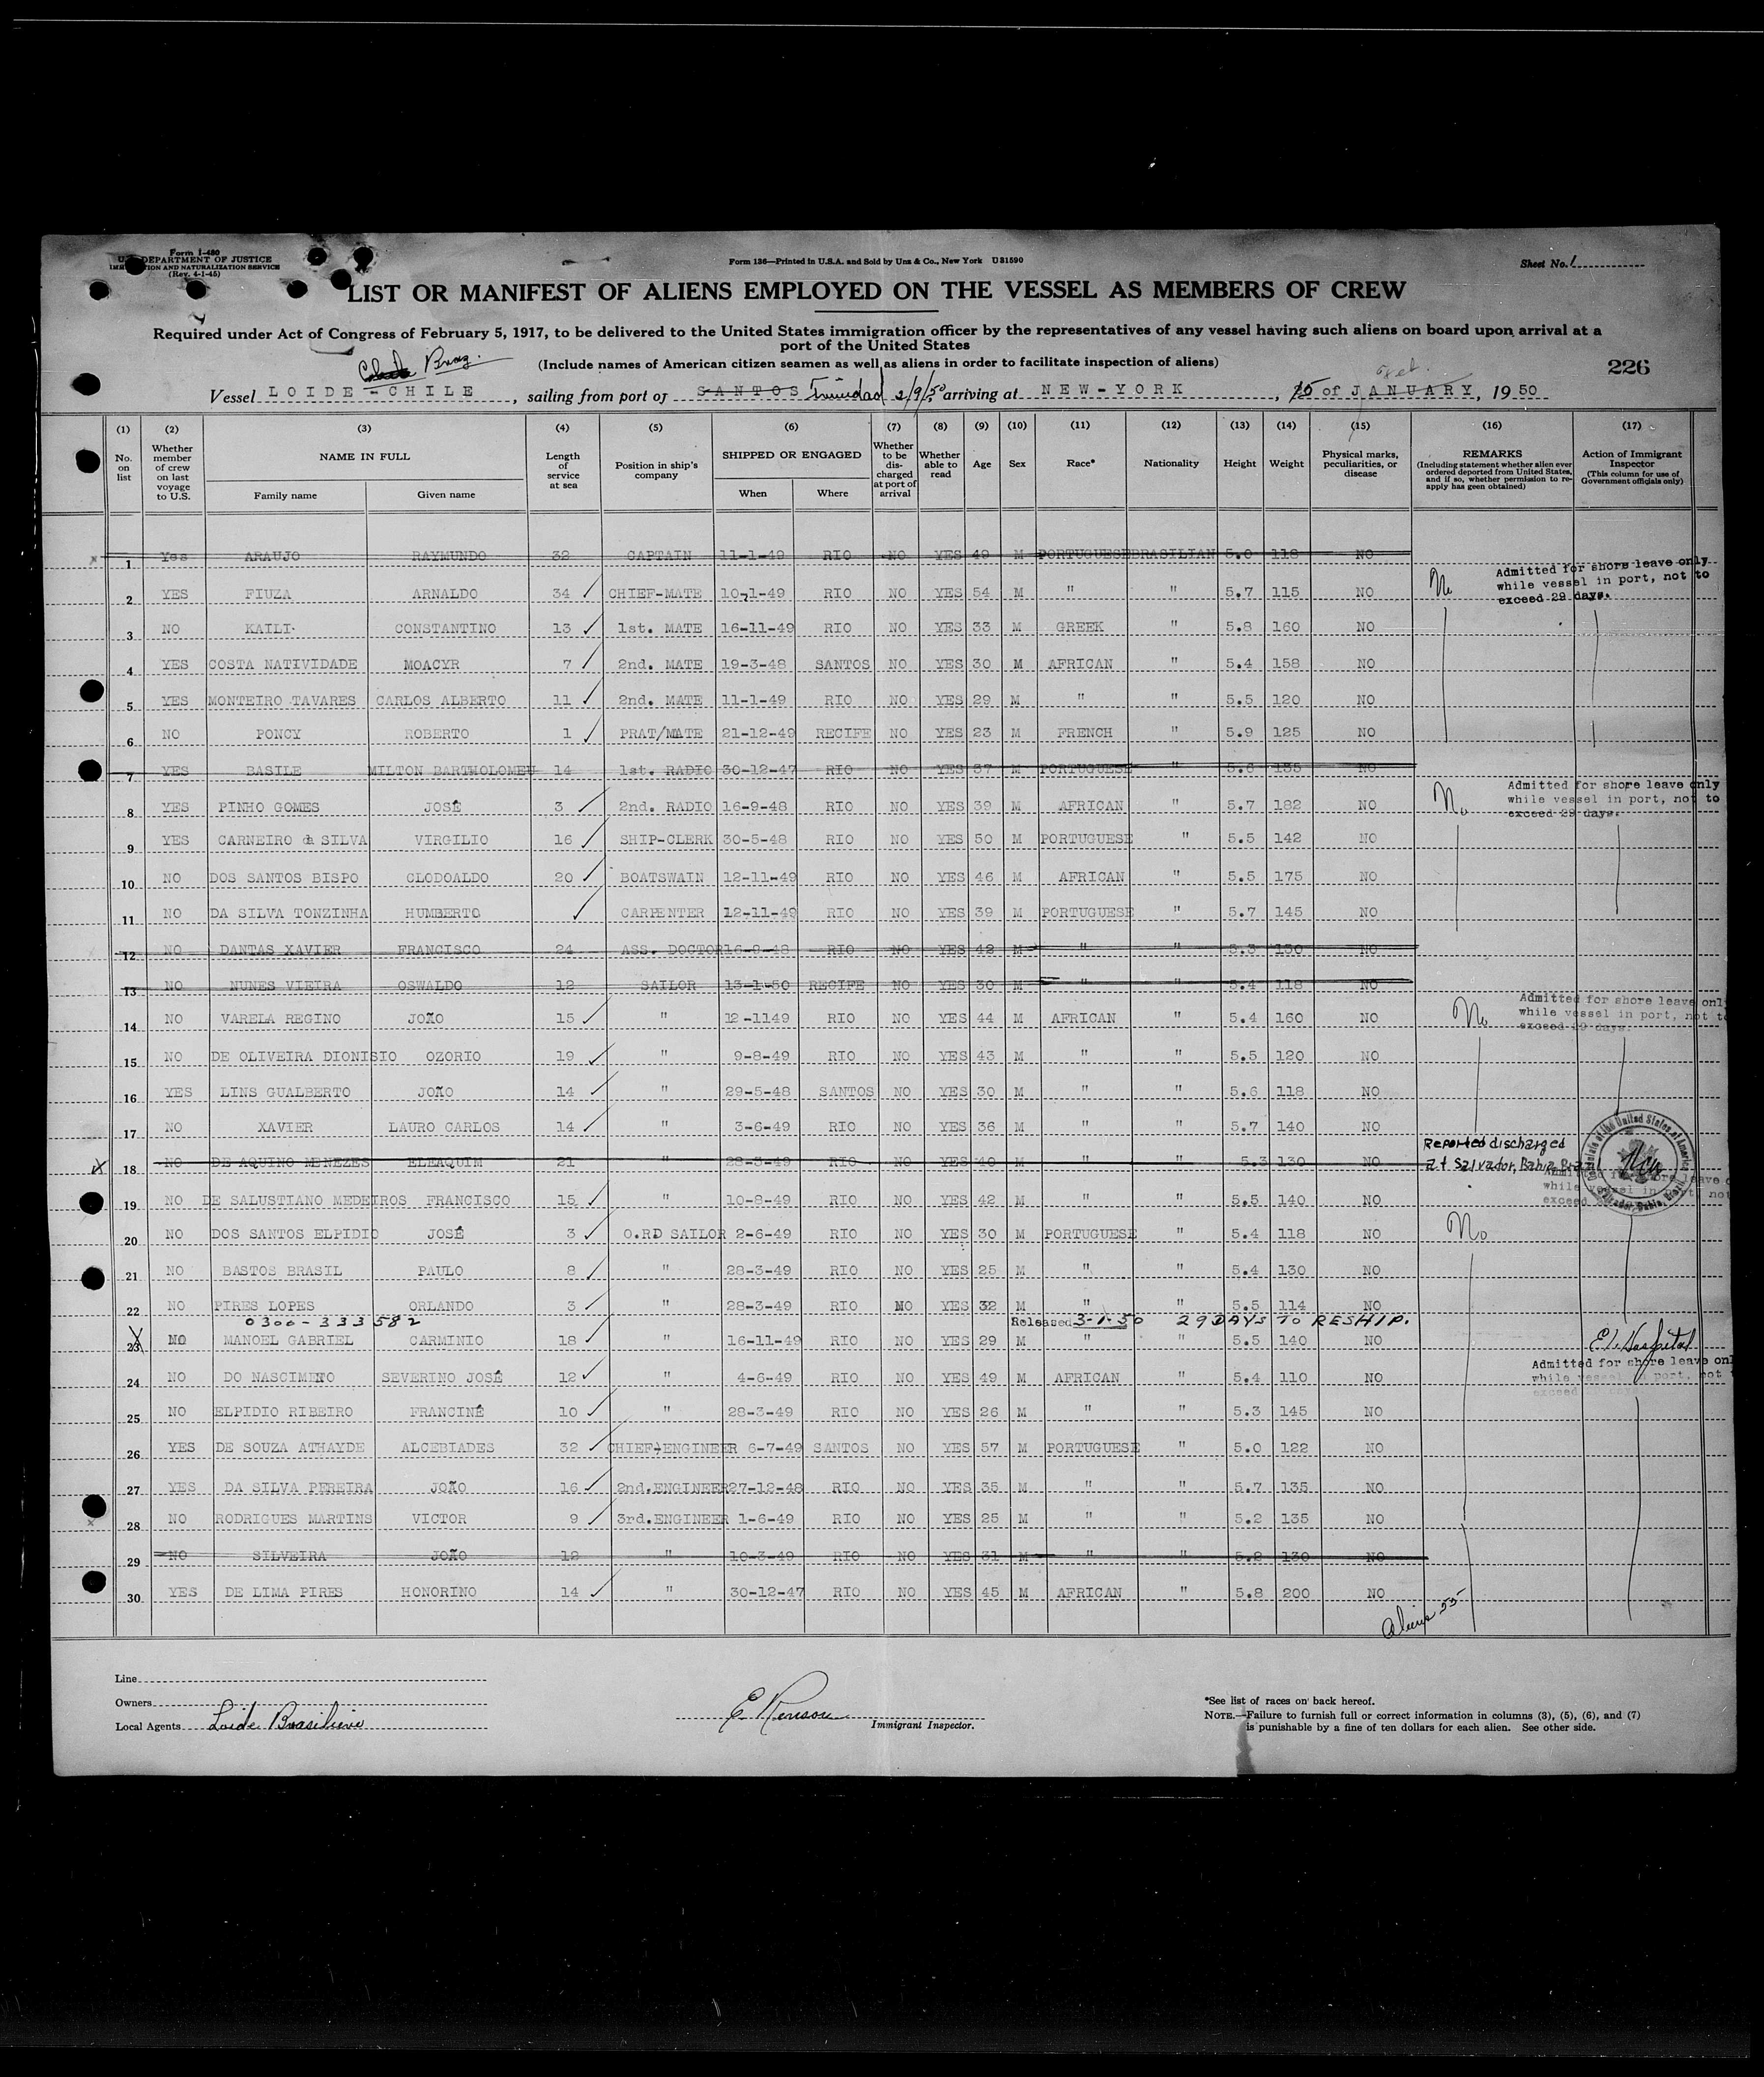 Form I-480
U.S. DEPARTMENT OF JUSTICE
IMMIGRATION AND NATURALIZATION SERVICE
(Rev. 4-1-45)
Form 136—Printed in U.S.A. and Sold by Unz & Co., New York U31590
Sheet No. 1
LIST OR MANIFEST OF ALIENS EMPLOYED ON THE VESSEL AS MEMBERS OF CREW
Required under Act of Congress of February 5, 1917, to be delivered to the United States immigration officer by the representatives of any vessel having such aliens on board upon arrival at a
port of the United States
(Include names of American citizen seamen as well as aliens in order to facilitate inspection of aliens)
226
Braz.
Vessel LOIDE-CHILE, sailing from port of SANTOS Trinidad 2/9/50, arriving at NEW-YORK, of JANUARY, 1950
(1) (2) (3) (4) (5) (6) (7) (8) (9) (10) (11) (12) (13) (14) (15) (16) (17)
No. on list
Whether member of crew on last voyage to U.S.
NAME IN FULL
Family name
Given name
Length of service at sea
Position in ship's company
SHIPPED OR ENGAGED
When
Where
Whether to be discharged at port of arrival
Whether able to read
Age
Sex
Race*
Nationality
Height
Weight
Physical marks, peculiarities, or disease
REMARKS
(Including statement whether alien ever ordered deported from United States, and if so, whether permission to re-apply has geen obtained)
Action of Immigrant Inspector
(This column for use of Government officials only)
1 Yes ARAUJO RAYMUNDO 32 CAPTAIN 11-1-49 RIO NO YES 49 M PORTUGUESE BRASILIAN 5.0 118 NO
Admitted for shore leave only
while vessel in port, not to
exceed 29 days.
2 YES FIUZA ARNALDO 34 CHIEF-MATE 10-1-49 RIO NO YES 54 M " " 5.7 115 NO No
3 NO KAILI CONSTANTINO 13 1st. MATE 16-11-49 RIO NO YES 33 M GREEK " 5.8 160 NO
4 YES COSTA NATIVIDADE MOACYR 7 2nd. MATE 19-3-48 SANTOS NO YES 30 M AFRICAN " 5.4 158 NO
5 YES MONTEIRO TAVARES CARLOS ALBERTO 11 2nd. MATE 11-1-49 RIO NO YES 29 M " " 5.5 120 NO
6 NO PONCY ROBERTO 1 PRAT/MATE 21-12-49 RECIFE NO YES 23 M FRENCH " 5.9 125 NO
7 YES BASILE MILTON BARTHOLOMEU 14 1st. RADIO 30-12-47 RIO NO YES 37 M PORTUGUESE " 5.6 135 NO
Admitted for shore leave only
while vessel in port, not to
exceed 29 days.
8 YES PINHO GOMES JOSÉ 3 2nd. RADIO 16-9-48 RIO NO YES 39 M AFRICAN " 5.7 182 NO No
9 YES CARNEIRO da SILVA VIRGILIO 16 SHIP-CLERK 30-5-48 RIO NO YES 50 M PORTUGUESE " 5.5 142 NO
10 NO DOS SANTOS BISPO CLODOALDO 20 BOATSWAIN 12-11-49 RIO NO YES 46 M AFRICAN " 5.5 175 NO
11 NO DA SILVA TONZINHA HUMBERTO CARPENTER 12-11-49 RIO NO YES 39 M PORTUGUESE " 5.7 145 NO
12 NO DANTAS XAVIER FRANCISCO 24 ASS. DOCTOR 16-9-48 RIO NO YES 42 M " " 5.3 130 NO
13 NO NUNES VIEIRA OSWALDO 12 SAILOR 13-1-50 RECIFE NO YES 30 M " " 5.4 118 NO
Admitted for shore leave only
while vessel in port, not to
exceed 29 days.
14 NO VARELA REGINO JOÃO 15 " 12-1149 RIO NO YES 44 M AFRICAN " 5.4 160 NO No
15 NO DE OLIVEIRA DIONISIO OZORIO 19 " 9-8-49 RIO NO YES 43 M " " 5.5 120 NO
16 YES LINS GUALBERTO JOÃO 14 " 29-5-48 SANTOS NO YES 30 M " " 5.6 118 NO
17 NO XAVIER LAURO CARLOS 14 " 3-6-49 RIO NO YES 36 M " " 5.7 140 NO
Reported discharged
at Salvador, Bahia, Brazil
18 NO DE AQUINO MENEZES ELEAQUIM 21 " 28-3-49 RIO NO YES 40 M " " 5.3 130 NO
Admitted for shore leave
while vessel in port, not
exceed
19 NO DE SALUSTIANO MEDEIROS FRANCISCO 15 " 10-8-49 RIO NO YES 42 M " " 5.5 140 NO
20 NO DOS SANTOS ELPIDIO JOSÉ 3 O.RD SAILOR 2-6-49 RIO NO YES 30 M PORTUGUESE " 5.4 118 NO No
21 NO BASTOS BRASIL PAULO 8 " 28-3-49 RIO NO YES 25 M " " 5.4 130 NO
22 NO PIRES LOPES ORLANDO 3 " 28-3-49 RIO NO YES 32 M " " 5.5 114 NO
0300-333582 Released 3-1-50 29 DAYS TO RESHIP.
23 NO MANOEL GABRIEL CARMINIO 18 " 16-11-49 RIO NO YES 29 M " " 5.5 140 NO E.I. Hospital
Admitted for shore leave only
while vessel in port, not
exceed
24 NO DO NASCIMENTO SEVERINO JOSÉ 12 " 4-6-49 RIO NO YES 49 M AFRICAN " 5.4 110 NO
25 NO ELPIDIO RIBEIRO FRANCINÉ 10 " 28-3-49 RIO NO YES 26 M " " 5.3 145 NO
26 YES DE SOUZA ATHAYDE ALCEBIADES 32 CHIEF-ENGINEER 6-7-49 SANTOS NO YES 57 M PORTUGUESE " 5.0 122 NO
27 YES DA SILVA PEREIRA JOÃO 16 2nd.ENGINEER 27-12-48 RIO NO YES 35 M " " 5.7 135 NO
28 NO RODRIGUES MARTINS VICTOR 9 3rd.ENGINEER 1-6-49 RIO NO YES 25 M " " 5.2 135 NO
29 NO SILVEIRA JOÃO 12 " 10-3-49 RIO NO YES 31 M " " 5.2 130 NO
30 YES DE LIMA PIRES HONORINO 14 " 30-12-47 RIO NO YES 45 M AFRICAN " 5.8 200 NO
Aliens 55
Line
Owners
Local Agents Loide Brasilieiro
Immigrant Inspector.
*See list of races on back hereof.
NOTE.—Failure to furnish full or correct information in columns (3), (5), (6), and (7)
is punishable by a fine of ten dollars for each alien. See other side.